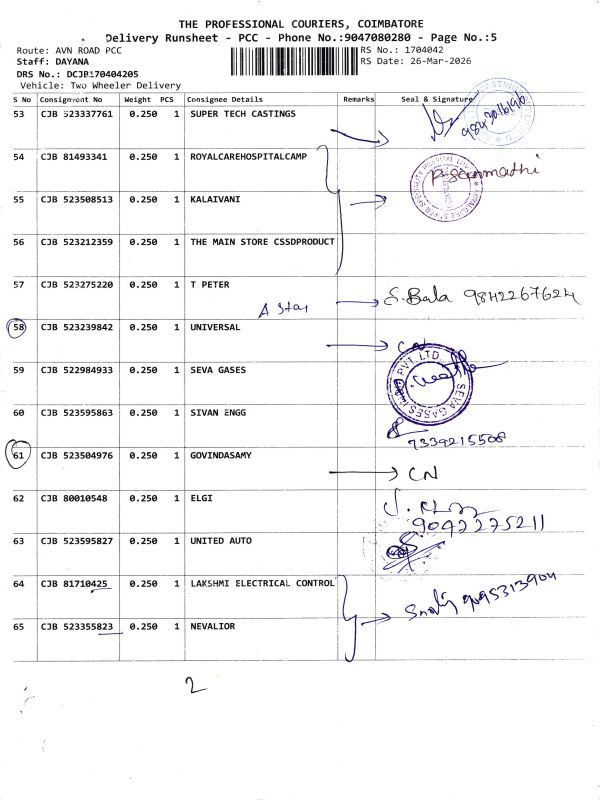 THE PROFESSIONAL COURIERS, COIMBATORE
Delivery Runsheet - PCC - Phone No.:9047080280 - Page No.:5
Route: AVN ROAD PCC RS No.: 1704042
Staff: DAYANA RS Date: 26-Mar-2026
DRS No.: DCJB170404205
Vehicle: Two Wheeler Delivery
S No Consignment No Weight PCS Consignee Details Remarks Seal & Signature
53 CJB 523337761 0.250 1 SUPER TECH CASTINGS
54 CJB 81493341 0.250 1 ROYALCAREHOSPITALCAMP
55 CJB 523508513 0.250 1 KALAIVANI
56 CJB 523212359 0.250 1 THE MAIN STORE CSSDPRODUCT
57 CJB 523275220 0.250 1 T PETER S. Bala 9842267624
A Star
58 CJB 523239842 0.250 1 UNIVERSAL CN
59 CJB 522984933 0.250 1 SEVA GASES
SEVA GASES PVT. LTD.
60 CJB 523595863 0.250 1 SIVAN ENGG
7339215508
61 CJB 523504976 0.250 1 GOVINDASAMY CN
62 CJB 80010548 0.250 1 ELGI
9042275211
63 CJB 523595827 0.250 1 UNITED AUTO
64 CJB 81710425 0.250 1 LAKSHMI ELECTRICAL CONTROL
9095313904
65 CJB 523355823 0.250 1 NEVALIOR
2